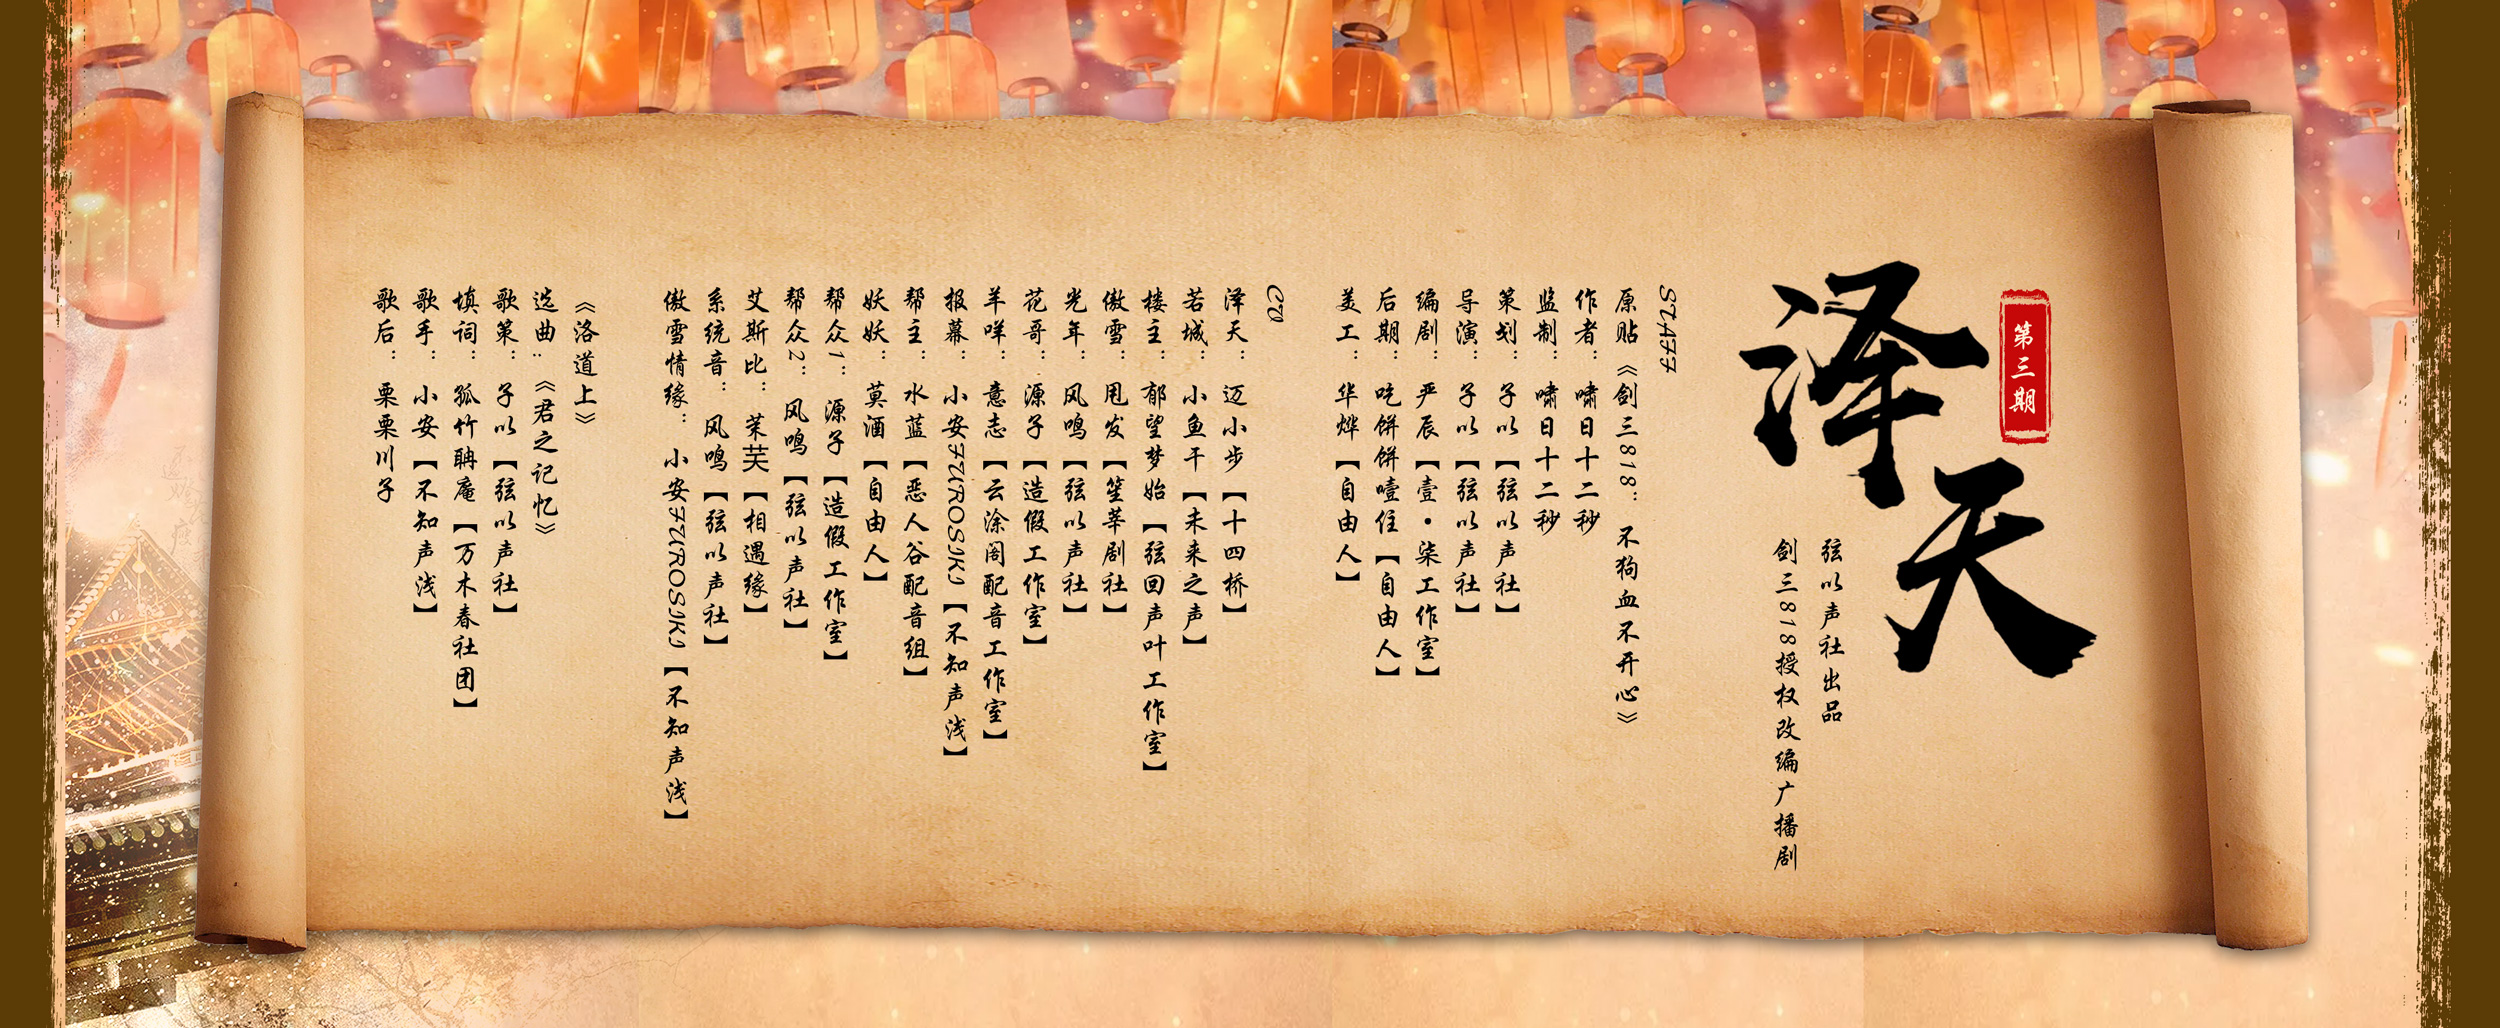 第三期
泽天
弦以声社出品
剑三818授权改编广播剧
STAFF
原贴《剑三818：不狗血不开心》
作者：啸日十二秒
监制：啸日十二秒
策划：子以【弦以声社】
导演：子以【弦以声社】
编剧：严辰【壹•柒工作室】
后期：吃饼饼噎住【自由人】
美工：华烨【自由人】
CV
泽天：迈小步【十四桥】
若城：小鱼干【未来之声】
楼主：郁望梦始【弦回声叶工作室】
傲雪：甩发【笙莘剧社】
光年：风鸣【弦以声社】
花哥：源子【造假工作室】
羊咩：意志【云涂阁配音工作室】
报幕：小安FUROSIKI【不知声浅】
帮主：水蓝【恶人谷配音组】
妖妖：莫酒【自由人】
帮众1：源子【造假工作室】
帮众2：风鸣【弦以声社】
艾斯比：茉芙【相遇缘】
系统音：风鸣【弦以声社】
傲雪情缘：小安FUROSIKI【不知声浅】
《洛道上》
选曲：《君之记忆》
歌策：子以【弦以声社】
填词：孤竹聃庵【万木春社团】
歌手：小安【不知声浅】
歌后：栗栗川子